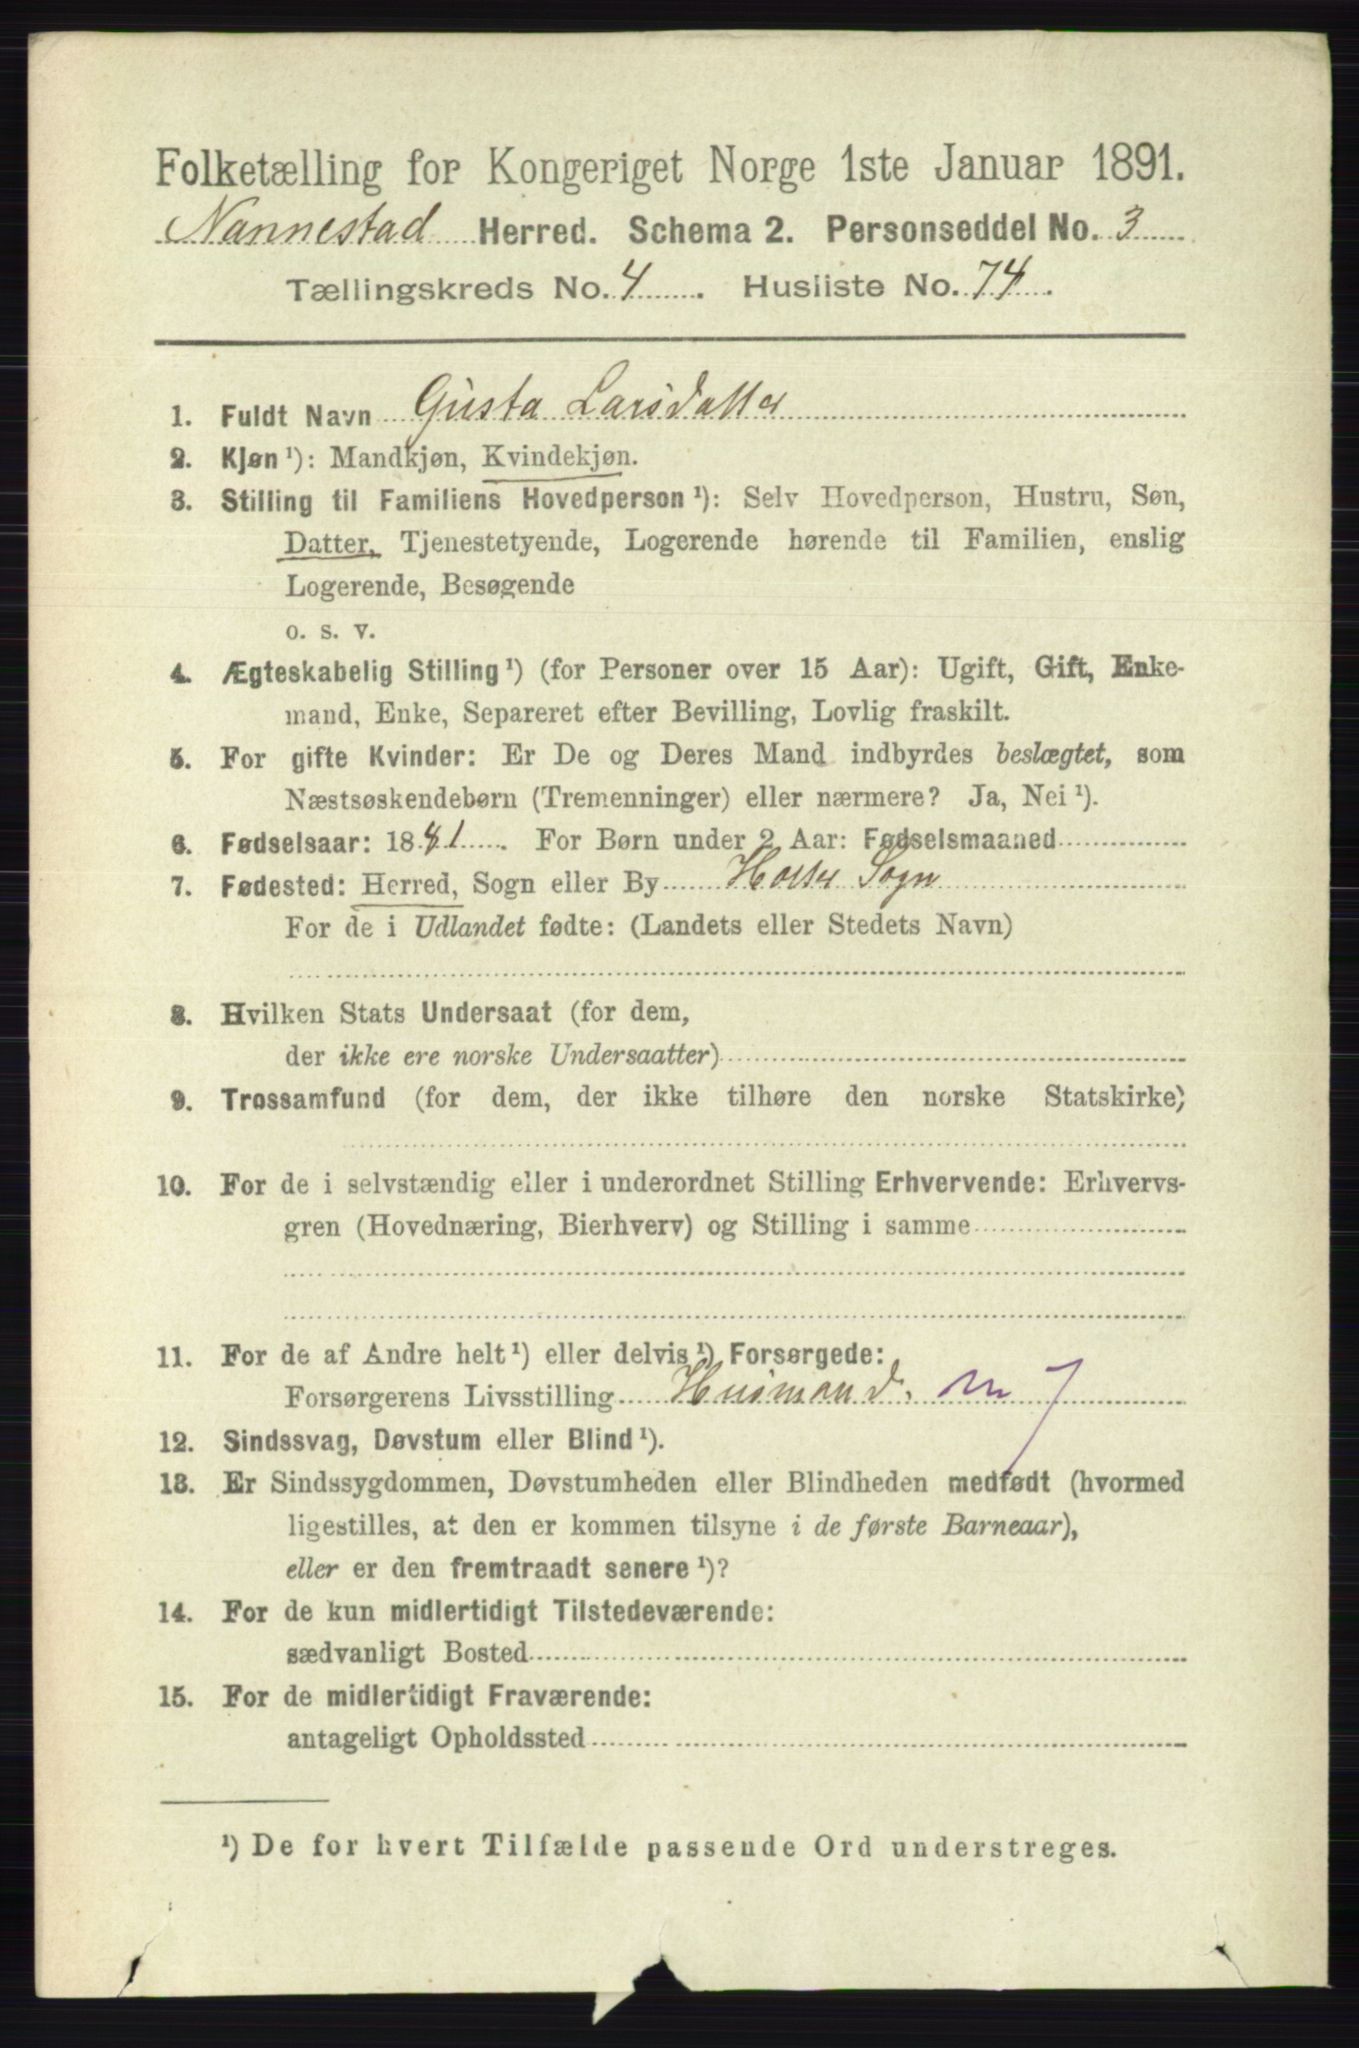 Folketælling for Kongeriget Norge 1ste Januar 1891.
Nannestad Herred. Schema 2. Personseddel No. 3
Tællingskreds No. 4. Husliste No. 74.
1. Fuldt Navn Gusta Larsdatter
2. Kjøn ¹): Mandkjøn, Kvindekjøn.
3. Stilling til Familiens Hovedperson ¹): Selv Hovedperson, Hustru, Søn,
Datter, Tjenestetyende, Logerende hørende til Familien, enslig
Logerende, Besøgende
o. s. v.
4. Ægteskabelig Stilling ¹) (for Personer over 15 Aar): Ugift, Gift, Enke-
mand, Enke, Separeret efter Bevilling, Lovlig fraskilt.
5. For gifte Kvinder: Er De og Deres Mand indbyrdes beslægtet, som
Næstsøskendebørn (Tremenninger) eller nærmere? Ja, Nei ¹).
6. Fødselsaar: 1881. For Børn under 2 Aar: Fødselsmaaned
7. Fødested: Herred, Sogn eller By Holter Sogn
For de i Udlandet fødte: (Landets eller Stedets Navn)
8. Hvilken Stats Undersaat (for dem,
der ikke ere norske Undersaatter)
9. Trossamfund (for dem, der ikke tilhøre den norske Statskirke)
10. For de i selvstændig eller i underordnet Stilling Erhvervende: Erhvervs-
gren (Hovednæring, Bierhverv) og Stilling i samme
11. For de af Andre helt ¹) eller delvis ¹) Forsørgede:
Forsørgerens Livsstilling Husmand. m J
12. Sindssvag, Døvstum eller Blind ¹).
13. Er Sindssygdommen, Døvstumheden eller Blindheden medfødt (hvormed
ligestilles, at den er kommen tilsyne i de første Barneaar),
eller er den fremtraadt senere ¹)?
14. For de kun midlertidigt Tilstedeværende:
sædvanligt Bosted
15. For de midlertidigt Fraværende:
antageligt Opholdssted
¹) De for hvert Tilfælde passende Ord understreges.